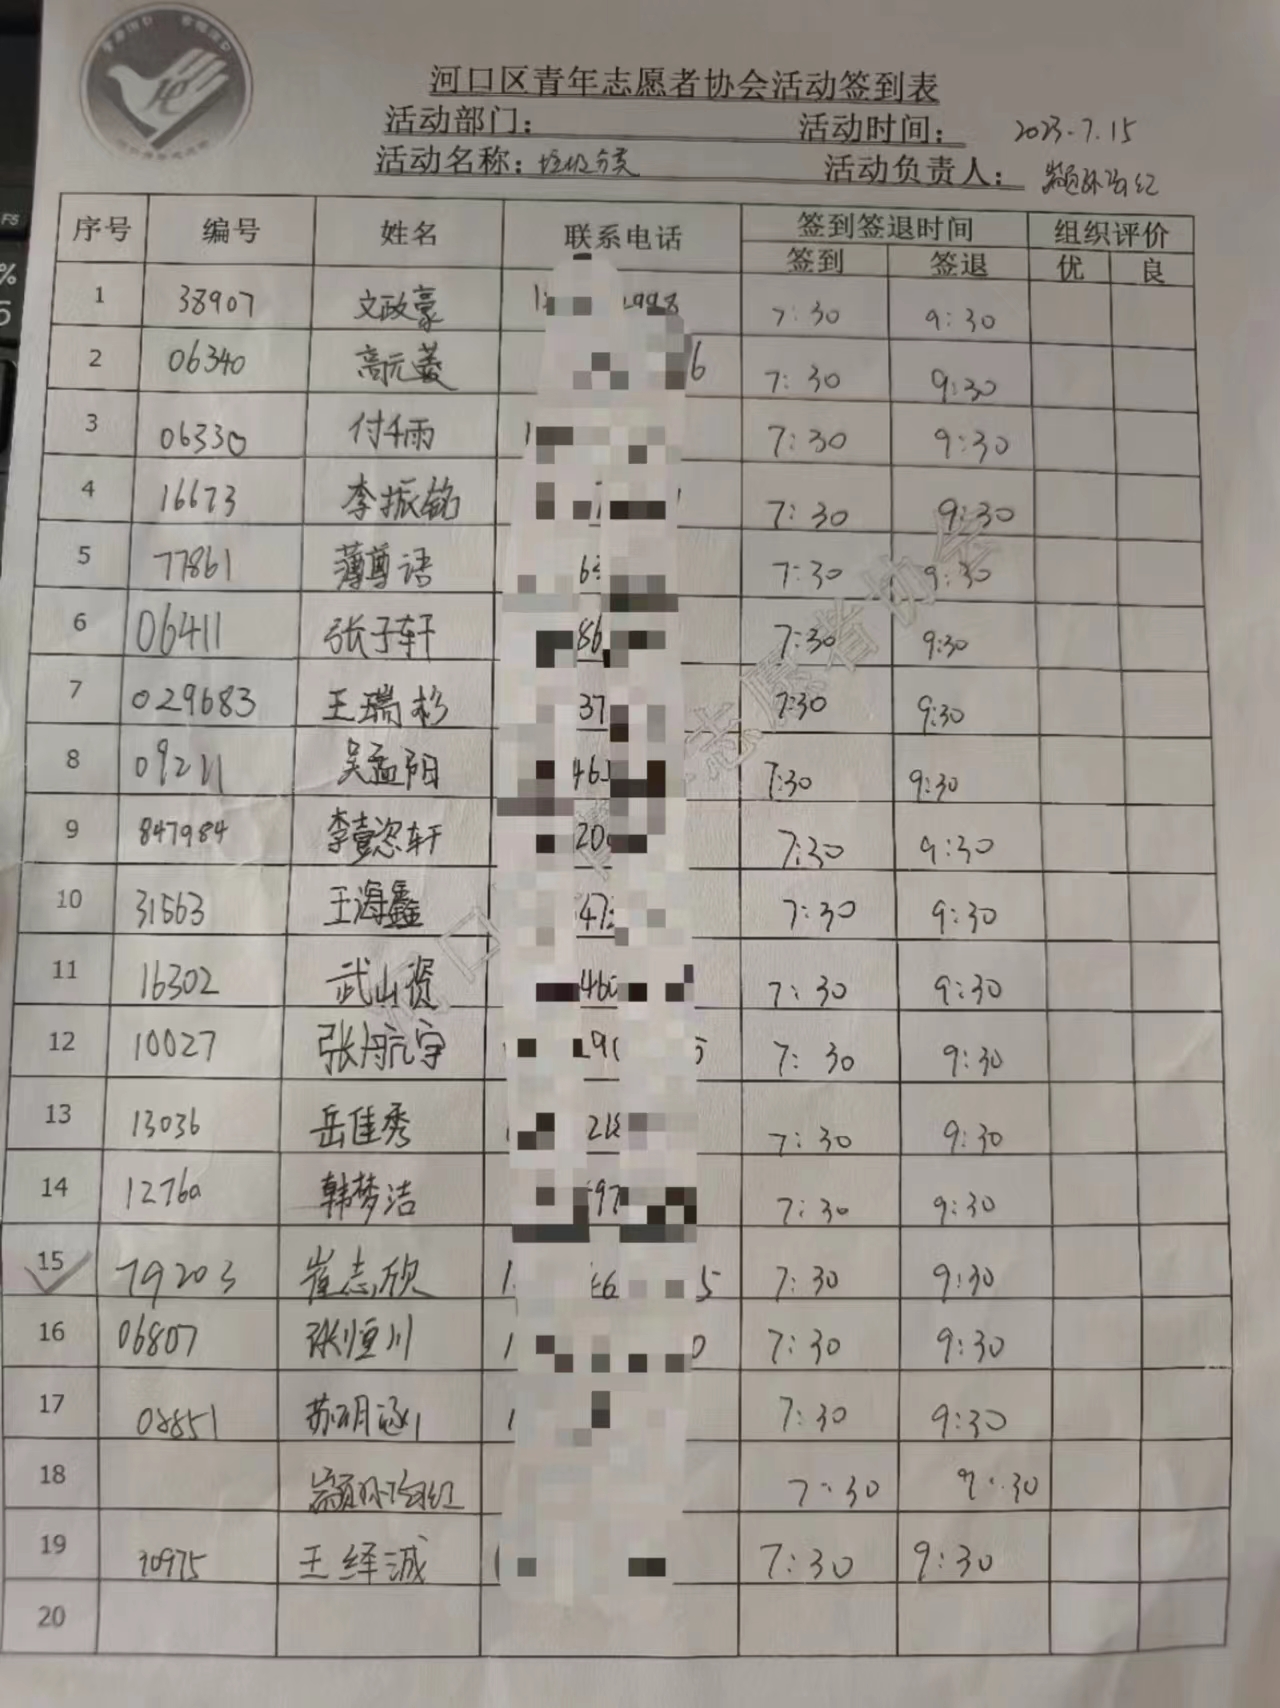 河口区青年志愿者协会活动签到表
活动部门： 活动时间： 2023.7.15
活动名称：垃圾分类 活动负责人：
序号 编号 姓名 联系电话 签到签退时间 组织评价
签到 签退 优 良
1 38907 文政豪 7:30 9:30
2 06340 高元菱 6 7:30 9:30
3 06330 付千雨 1 7:30 9:30
4 16673 李振铭 7:30 9:30
5 77861 薄尊语 7:30 9:30
6 06411 张子轩 86 7:30 9:30
7 029683 王瑞杉 37 7:30 9:30
8 09211 吴孟阳 46 7:30 9:30
9 847984 李壹恣轩 20 7:30 9:30
10 31563 王海鑫 47 7:30 9:30
11 16302 武山资 46 7:30 9:30
12 10027 张航宇 7:30 9:30
13 13036 岳佳秀 21 7:30 9:30
14 12760 韩梦洁 97 7:30 9:30
15 79203 崔志欣 1 5 7:30 9:30
16 06807 张恒川 1 0 7:30 9:30
17 08851 苏明涵 1 7:30 9:30
18 7:30 9:30
19 30975 王绎诚 7:30 9:30
20